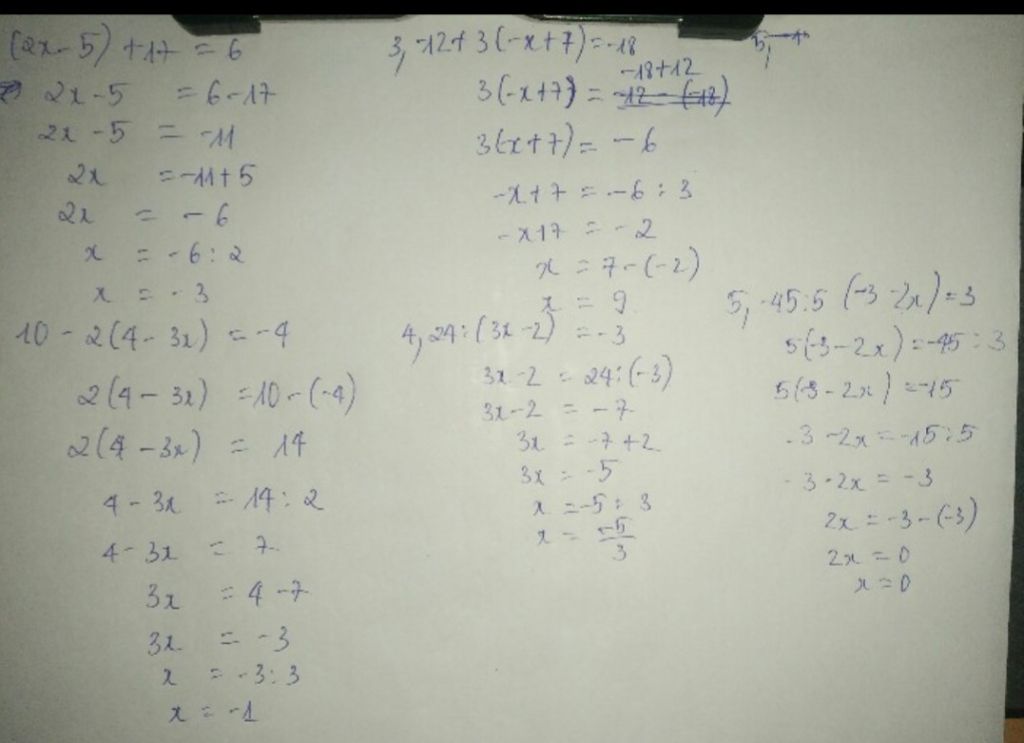 (2x - 5) + 17 = 6
2x - 5 = 6 - 17
2x - 5 = -11
2x = -11 + 5
2x = - 6
x = - 6 : 2
x = - 3
10 - 2(4 - 3x) = -4
2(4 - 3x) = 10 - (-4)
2(4 - 3x) = 14
4 - 3x = 14 : 2
4 - 3x = 7
3x = 4 - 7
3x = -3
x = -3 : 3
x = -1
3, -12 + 3(-x+7) = -18
-18+12
3(-x+7) = -12 - (-18)
3(x+7) = - 6
-x+7 = -6 : 3
-x+7 = -2
x = 7 - (-2)
x = 9
4, 24 : (3x - 2) = -3
3x - 2 = 24 : (-3)
3x - 2 = -7
3x = -7 + 2
3x = -5
x = -5 : 3
x = -5/3
5,
5, -45 : 5 (-3 - 2x) = 3
5(-3 - 2x) = -45 : 3
5(-3 - 2x) = -15
-3 - 2x = -15 : 5
-3 - 2x = -3
2x = -3 - (-3)
2x = 0
x = 0